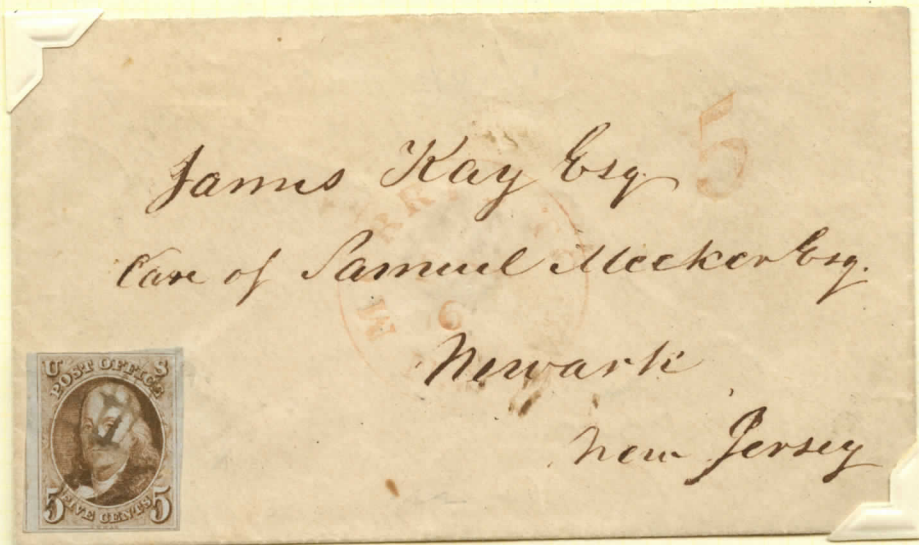 5
James Kay Esq.
Care of Samuel Meeker Esq.
Newark
New Jersey
U S
POST OFFICE
5 FIVE CENTS 5